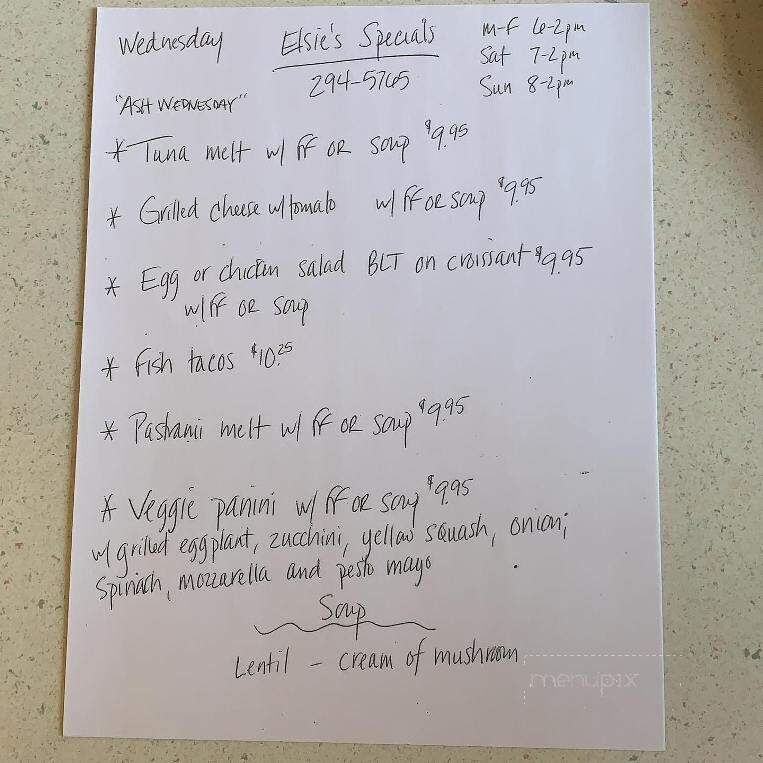 Wednesday
Elsie's Specials
M-F 6-2pm
294-5765
Sat 7-2pm
Sun 8-2pm
"ASH WEDNESDAY"
* Tuna melt w/ ff OR soup $9.95
* Grilled cheese w/tomato w/ ff OR soup $9.95
* Egg or chicken salad BLT on croissant $9.95
w/ ff OR soup
* fish tacos $10.25
* Pastrami melt w/ ff OR soup $9.95
* Veggie panini w/ ff OR soup $9.95
w/ grilled eggplant, zucchini, yellow squash, onion,
spinach, mozzarella and pesto mayo
Soup
Lentil - cream of mushroom
menupix